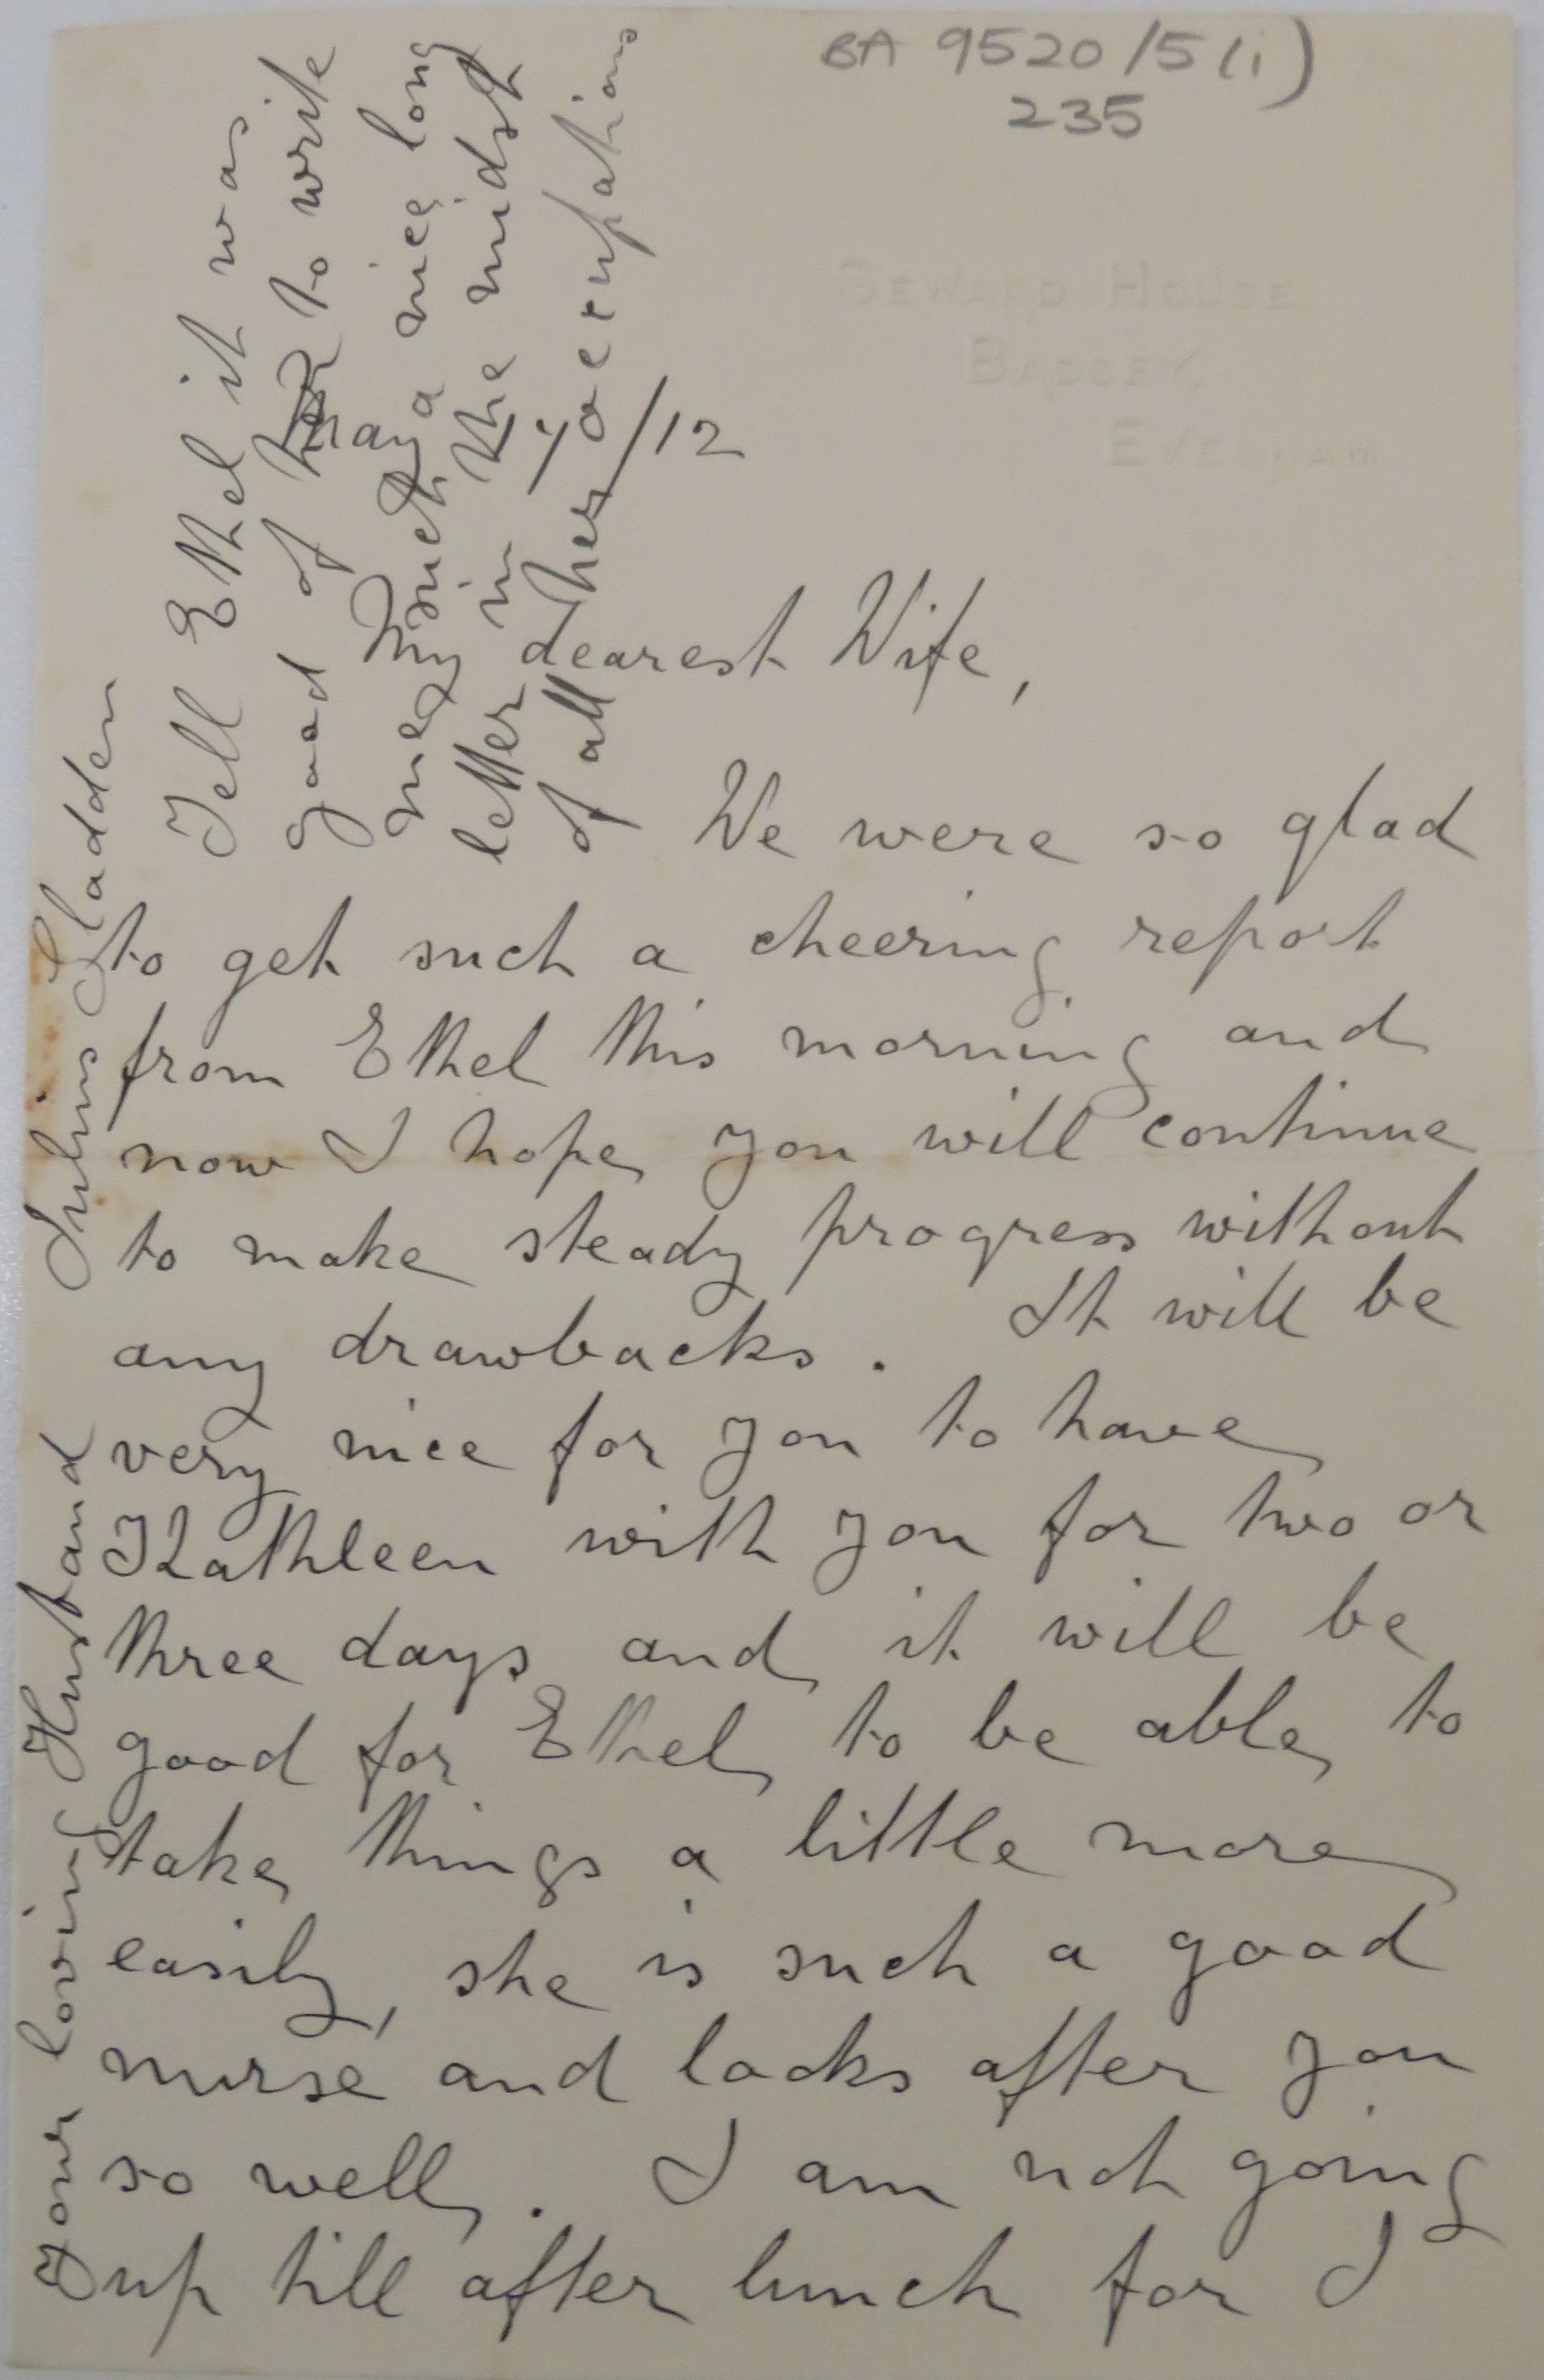 BA 9520/5(i)
235
SEWARD HOUSE,
BADSEY,
EVESHAM.
May 7/12
My dearest Wife,
We were so glad
to get such a cheering report
from Ethel this morning and
now I hope you will continue
to make steady progress without
any drawbacks. It will be
very nice for you to have
Kathleen with you for two or
three days and it will be
good for Ethel to be able to
take things a little more
easily, she is such a good
nurse and looks after you
so well. I am not going
up till after lunch for I
Your loving Husband
Julius Sladden
Tell Ethel it was
good of her to write
me such a nice long
letter in the midst
of all her occupations